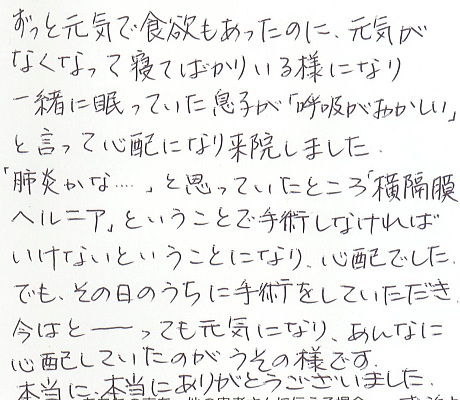 ずっと元気で食欲もあったのに、元気が
なくなって寝てばかりいる様になり
一緒に眠っていた息子が「呼吸がおかしい」
と言って心配になり来院しました.
「肺炎かな……」と思っていたところ「横隔膜
ヘルニア」ということで手術しなければ
いけないということになり、心配でした.
でも、その日のうちに手術をしていただき
今はと――っても元気になり、あんなに
心配していたのがうその様です.
本当に、本当にありがとうございました.